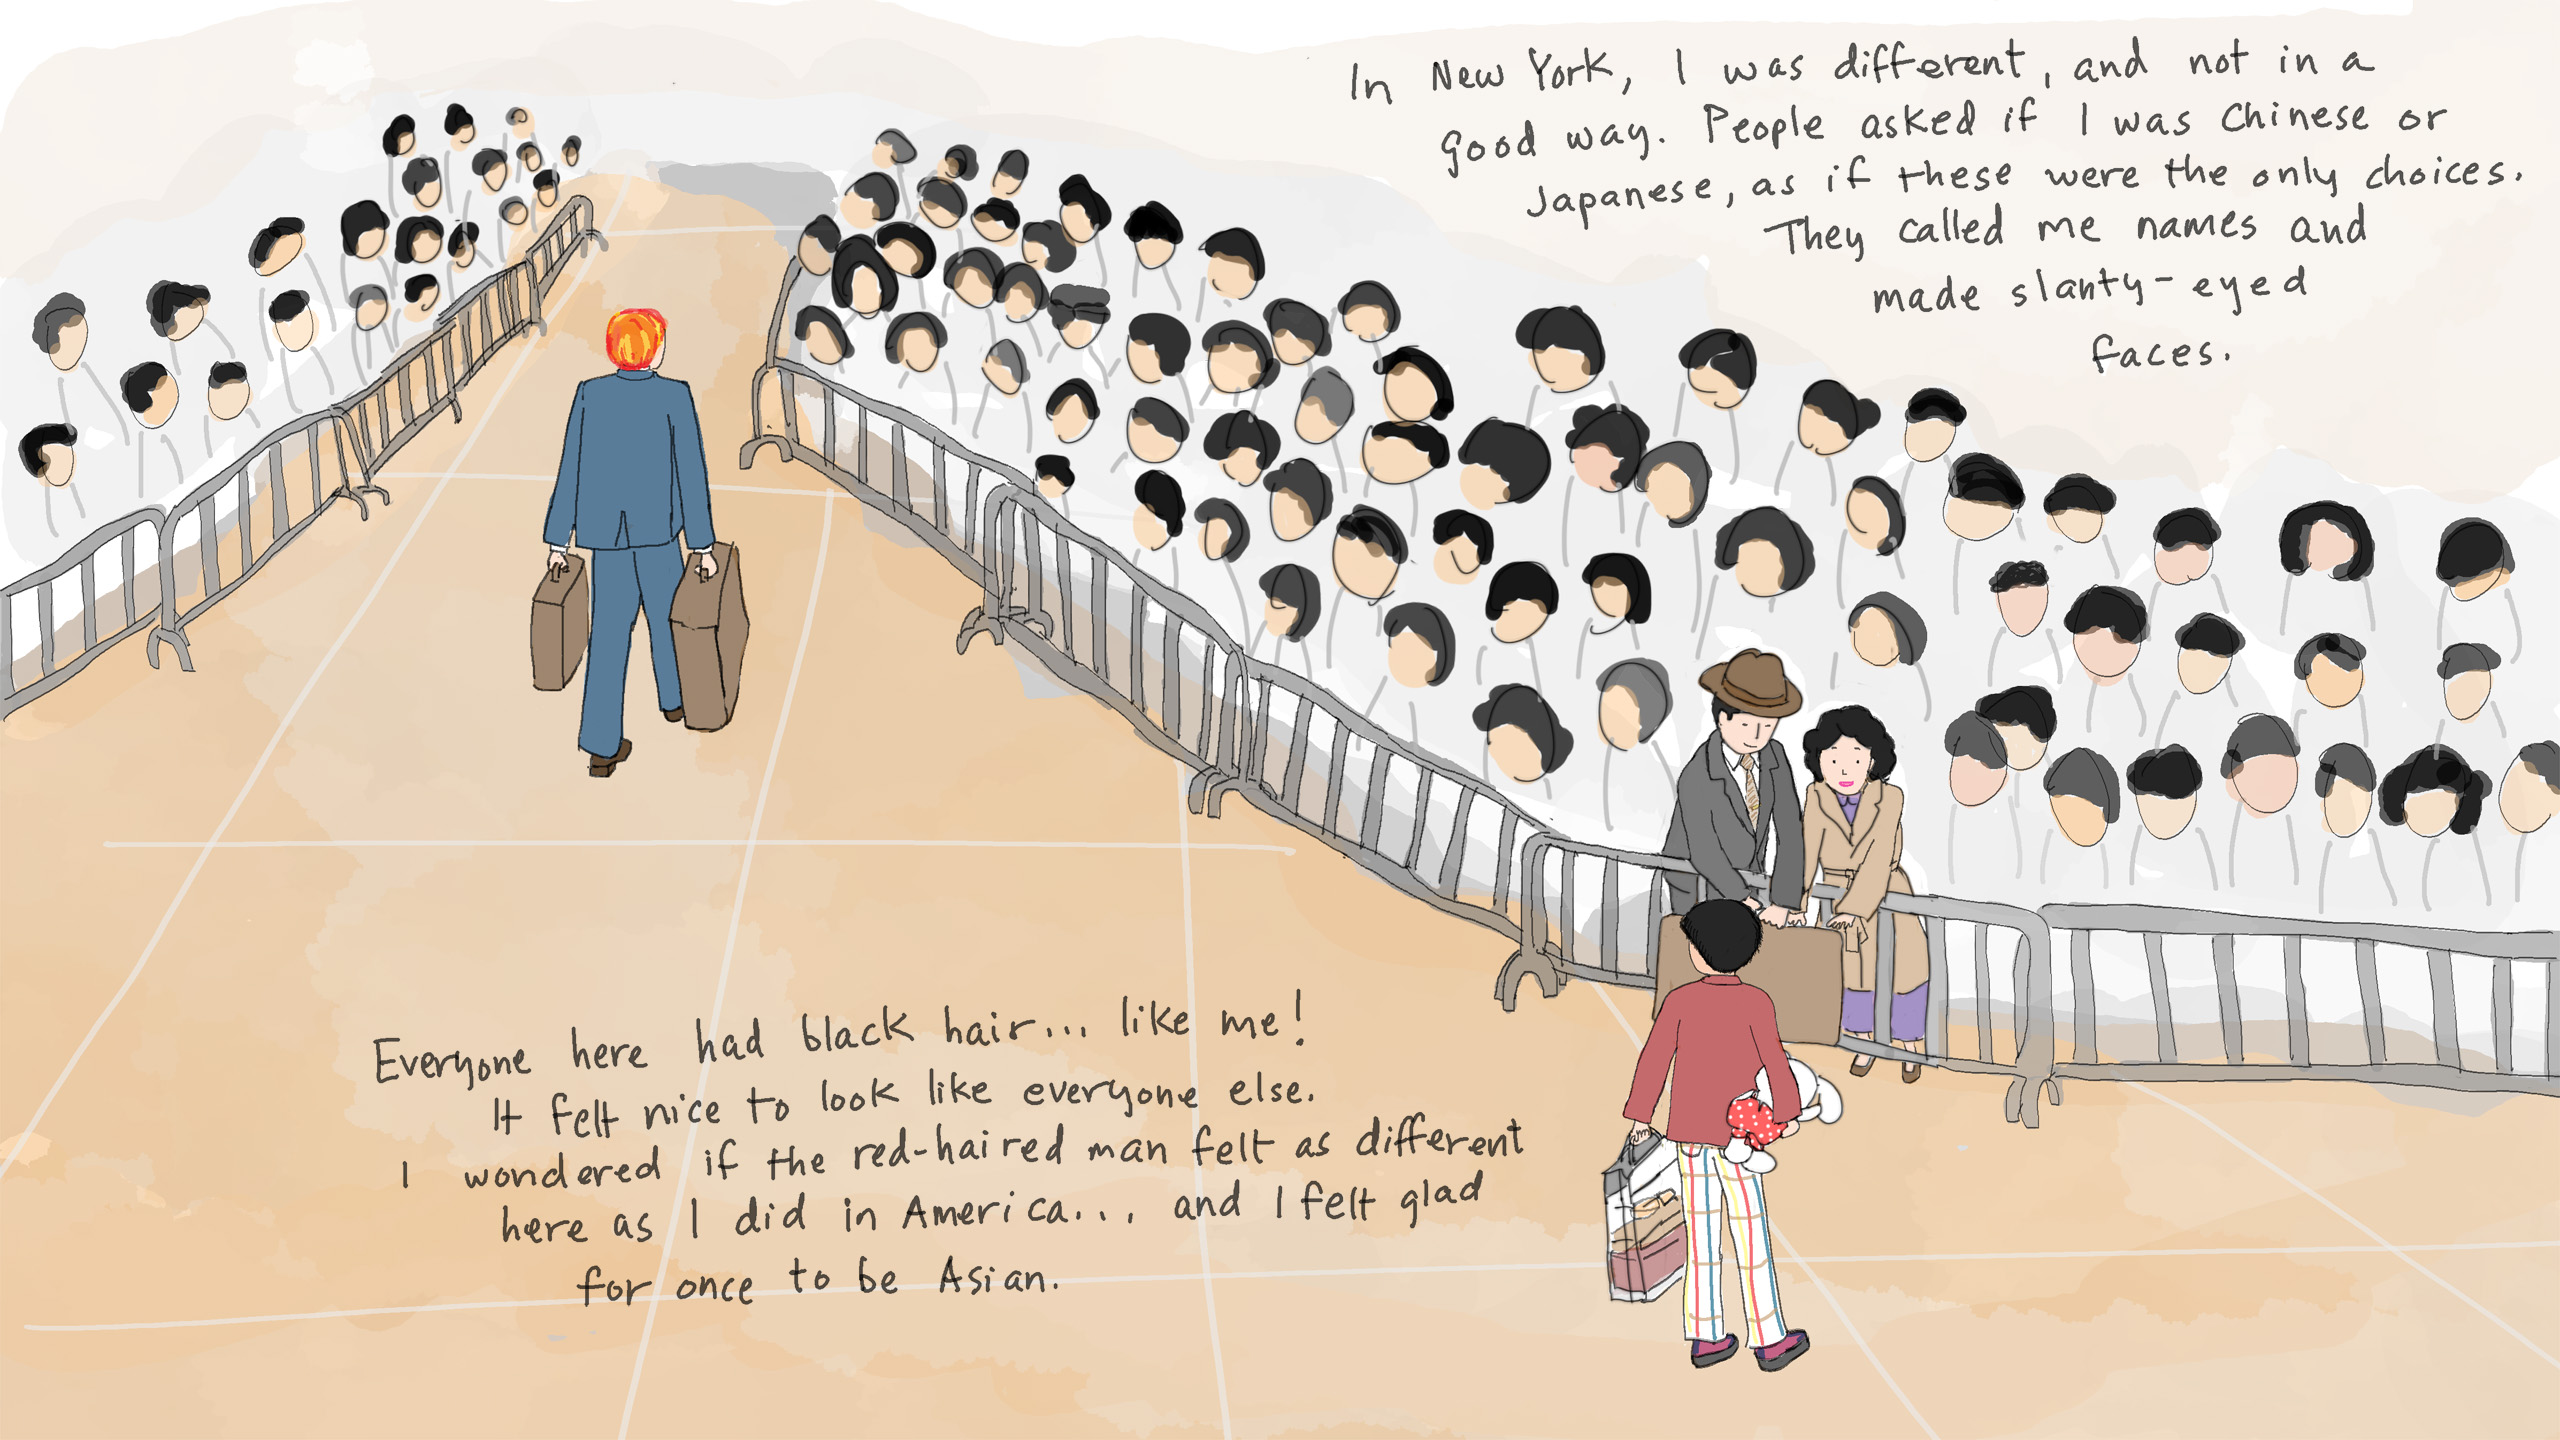 In New York, I was different, and not in a
good way. People asked if I was Chinese or
Japanese, as if these were the only choices.
They called me names and
made slanty-eyed
faces.
Everyone here had black hair... like me!
It felt nice to look like everyone else.
I wondered if the red-haired man felt as different
here as I did in America... and I felt glad
for once to be Asian.